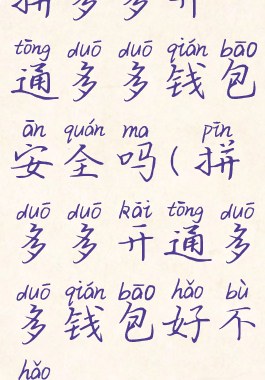 拼多多开
tōng duō duō qián bāo
通多多钱包
ān quán ma pīn
安全吗(拼
duō duō kāi tōng duō
多多开通多
duō qián bāo hǎo bù
多钱包好不
hǎo